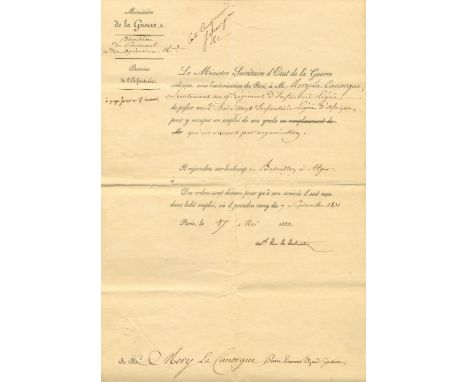 Ministère
de la Guerre.
Direction
du Personnel
et des Opérations Mil.
Bureau
de l'Infanterie
Le Ministre Secrétaire d'Etat de la Guerre
ordonne, sous l'autorisation du Roi, à M. Mory la Canorgue,
Lieutenant au 9e Régiment d'Infanterie Légère
de passer au 2e Bat.on d'Infanterie Légère d'Afrique,
pour y occuper un emploi de son grade en remplacement de
M. qui est vacant par organisation.
Il rejoindra sur-le-champ ce Bataillon à Alger
à
Des ordres sont donnés pour qu'à son arrivée il soit reçu
dans ledit emploi, où il prendra rang du 7 Septembre 1831
Paris, le 17 Mai 1833.
A M. Mory La Canorgue,